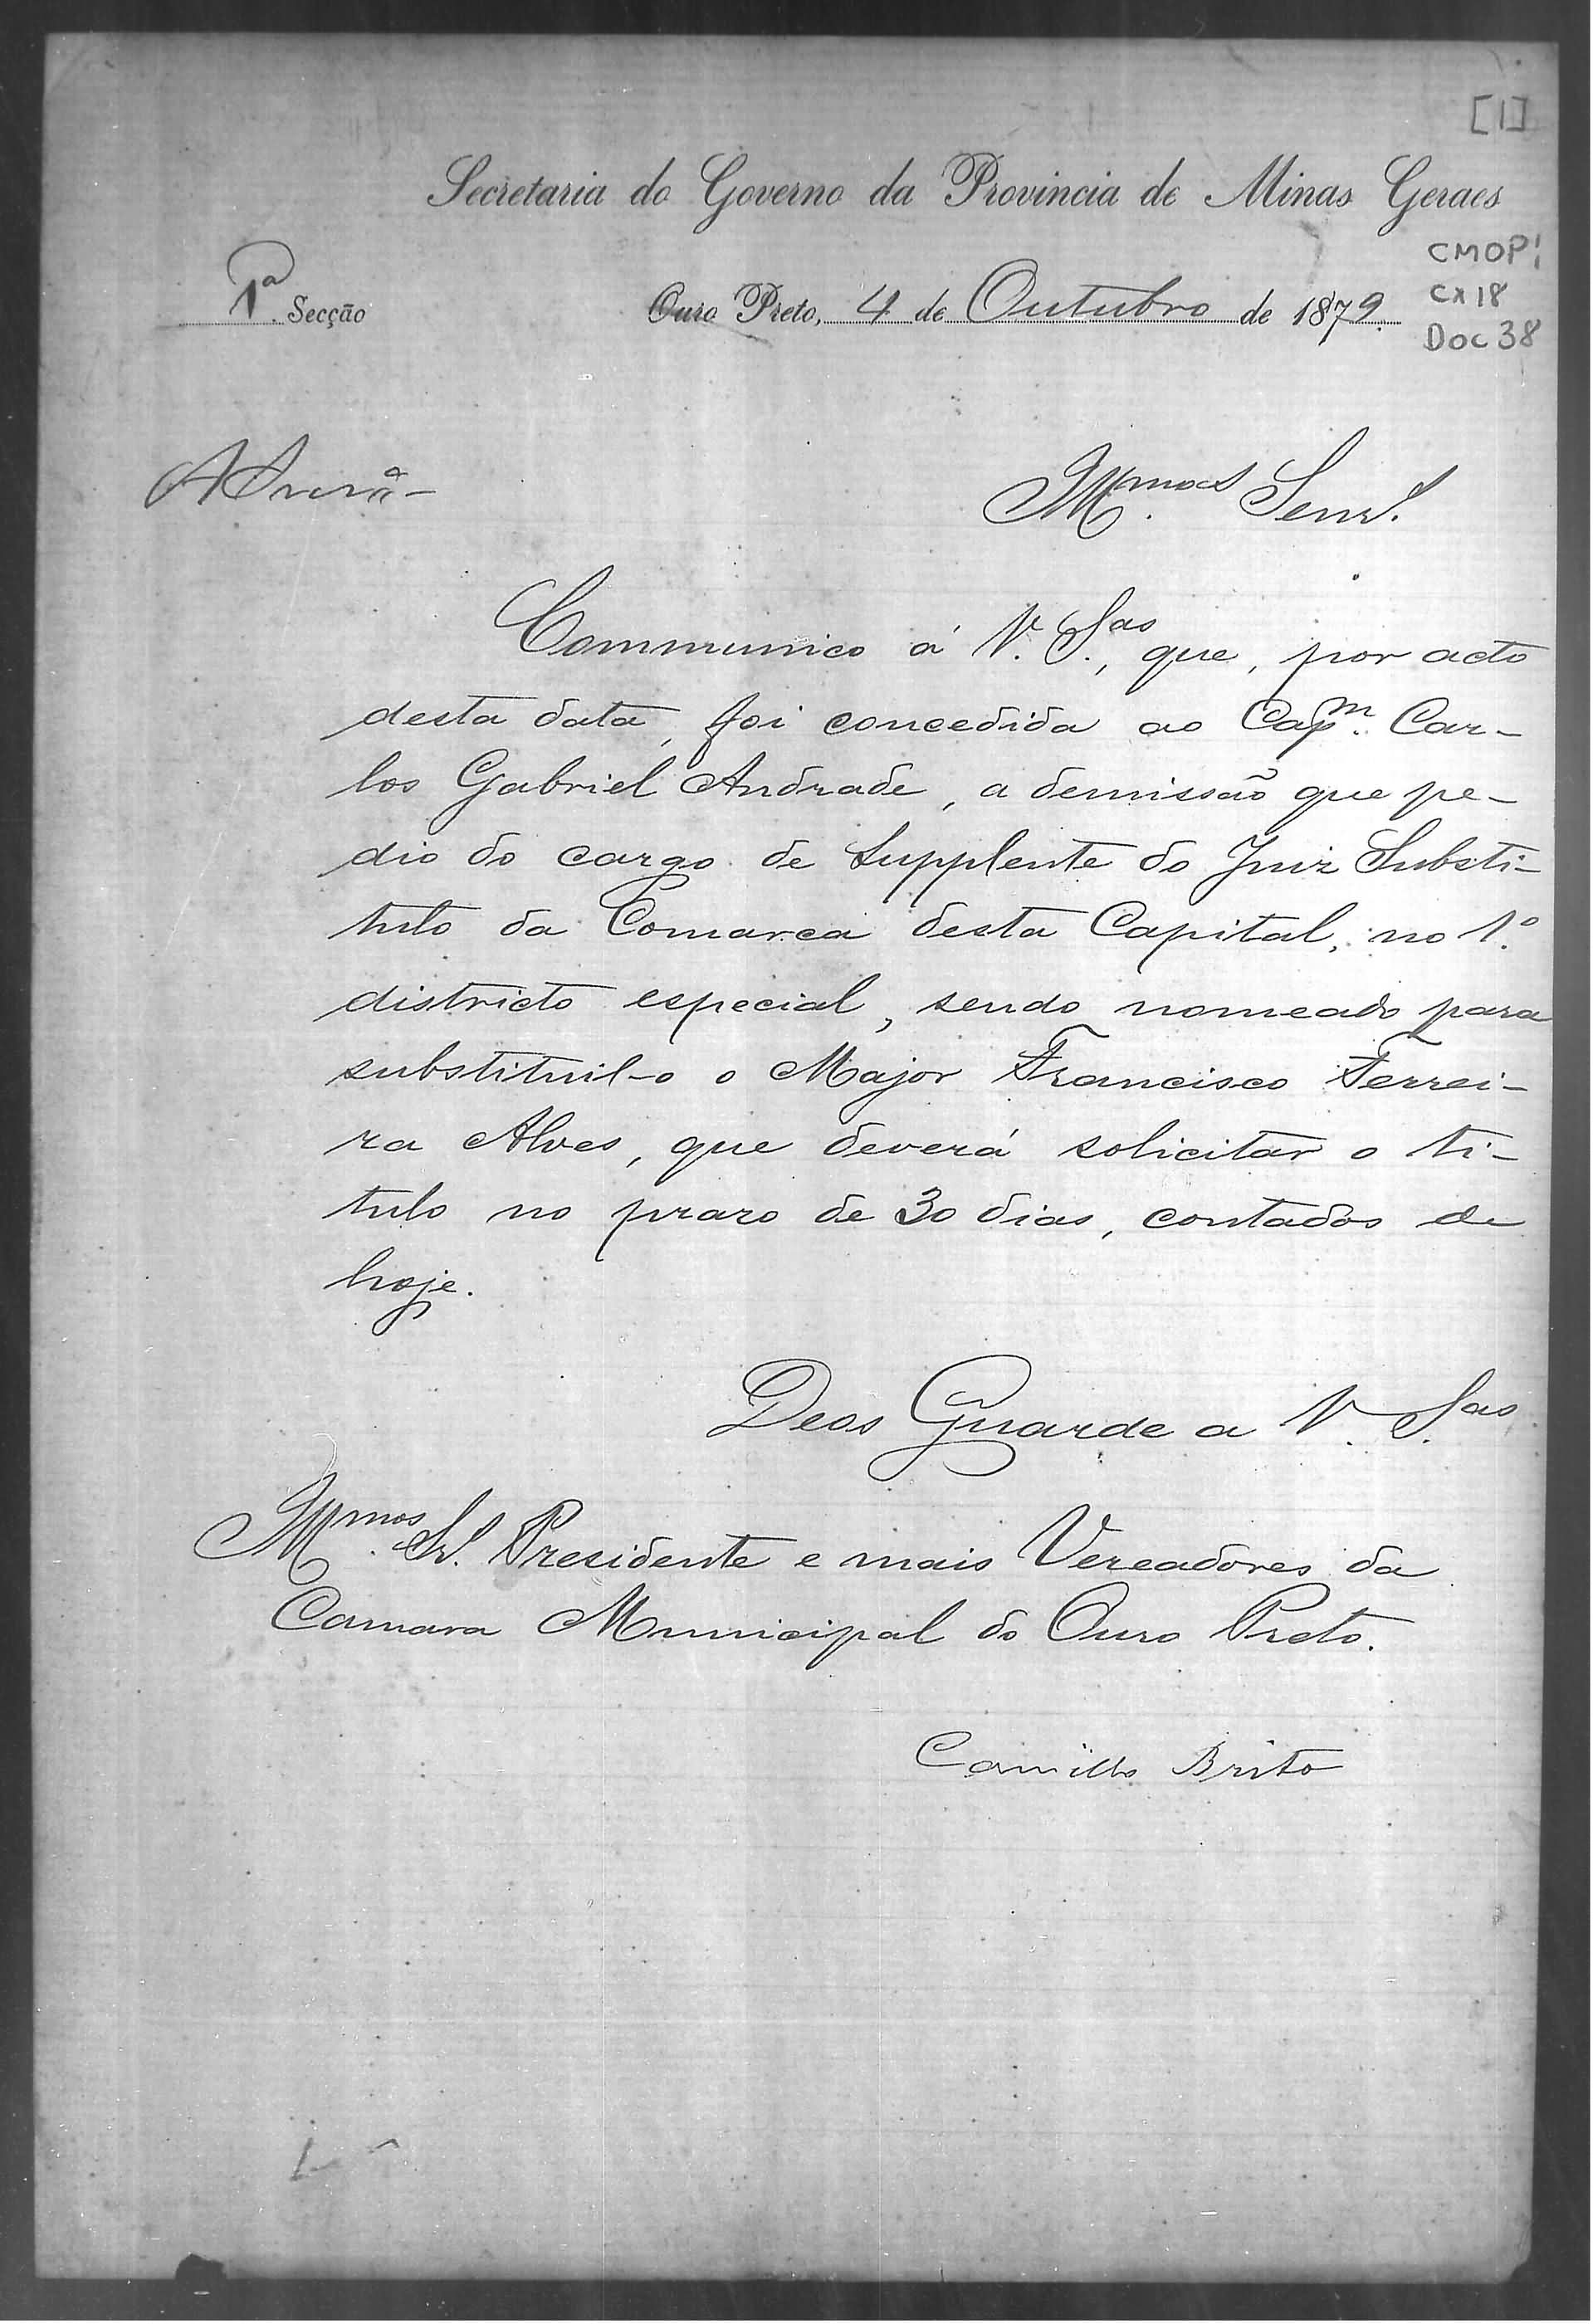 [1]
Secretaria do Governo da Provincia de Minas Geraes
CMOP
1ª Secção
Ouro Preto, 4 de Outubro de 1879.
CX 18
Doc 38
Illmos Senrs.
Communico á V. Sas., que, por acto
desta data, foi concedida ao Capm. Car-
los Gabriel Andrade, a demissão que pe-
dio do cargo de Supplente do Juiz Substi-
tuto da Comarca desta Capital, no 1º
districto especial, sendo nomeado para
substituil-o o Major Francisco Ferrei-
ra Alves, que deverá solicitar o ti-
tulo no prazo de 30 dias, contados de
hoje.
Deos Guarde a V. Sas.
Illmos. Srs. Presidente e mais Vereadores da
Camara Municipal do Ouro Preto.
Camillo Brito